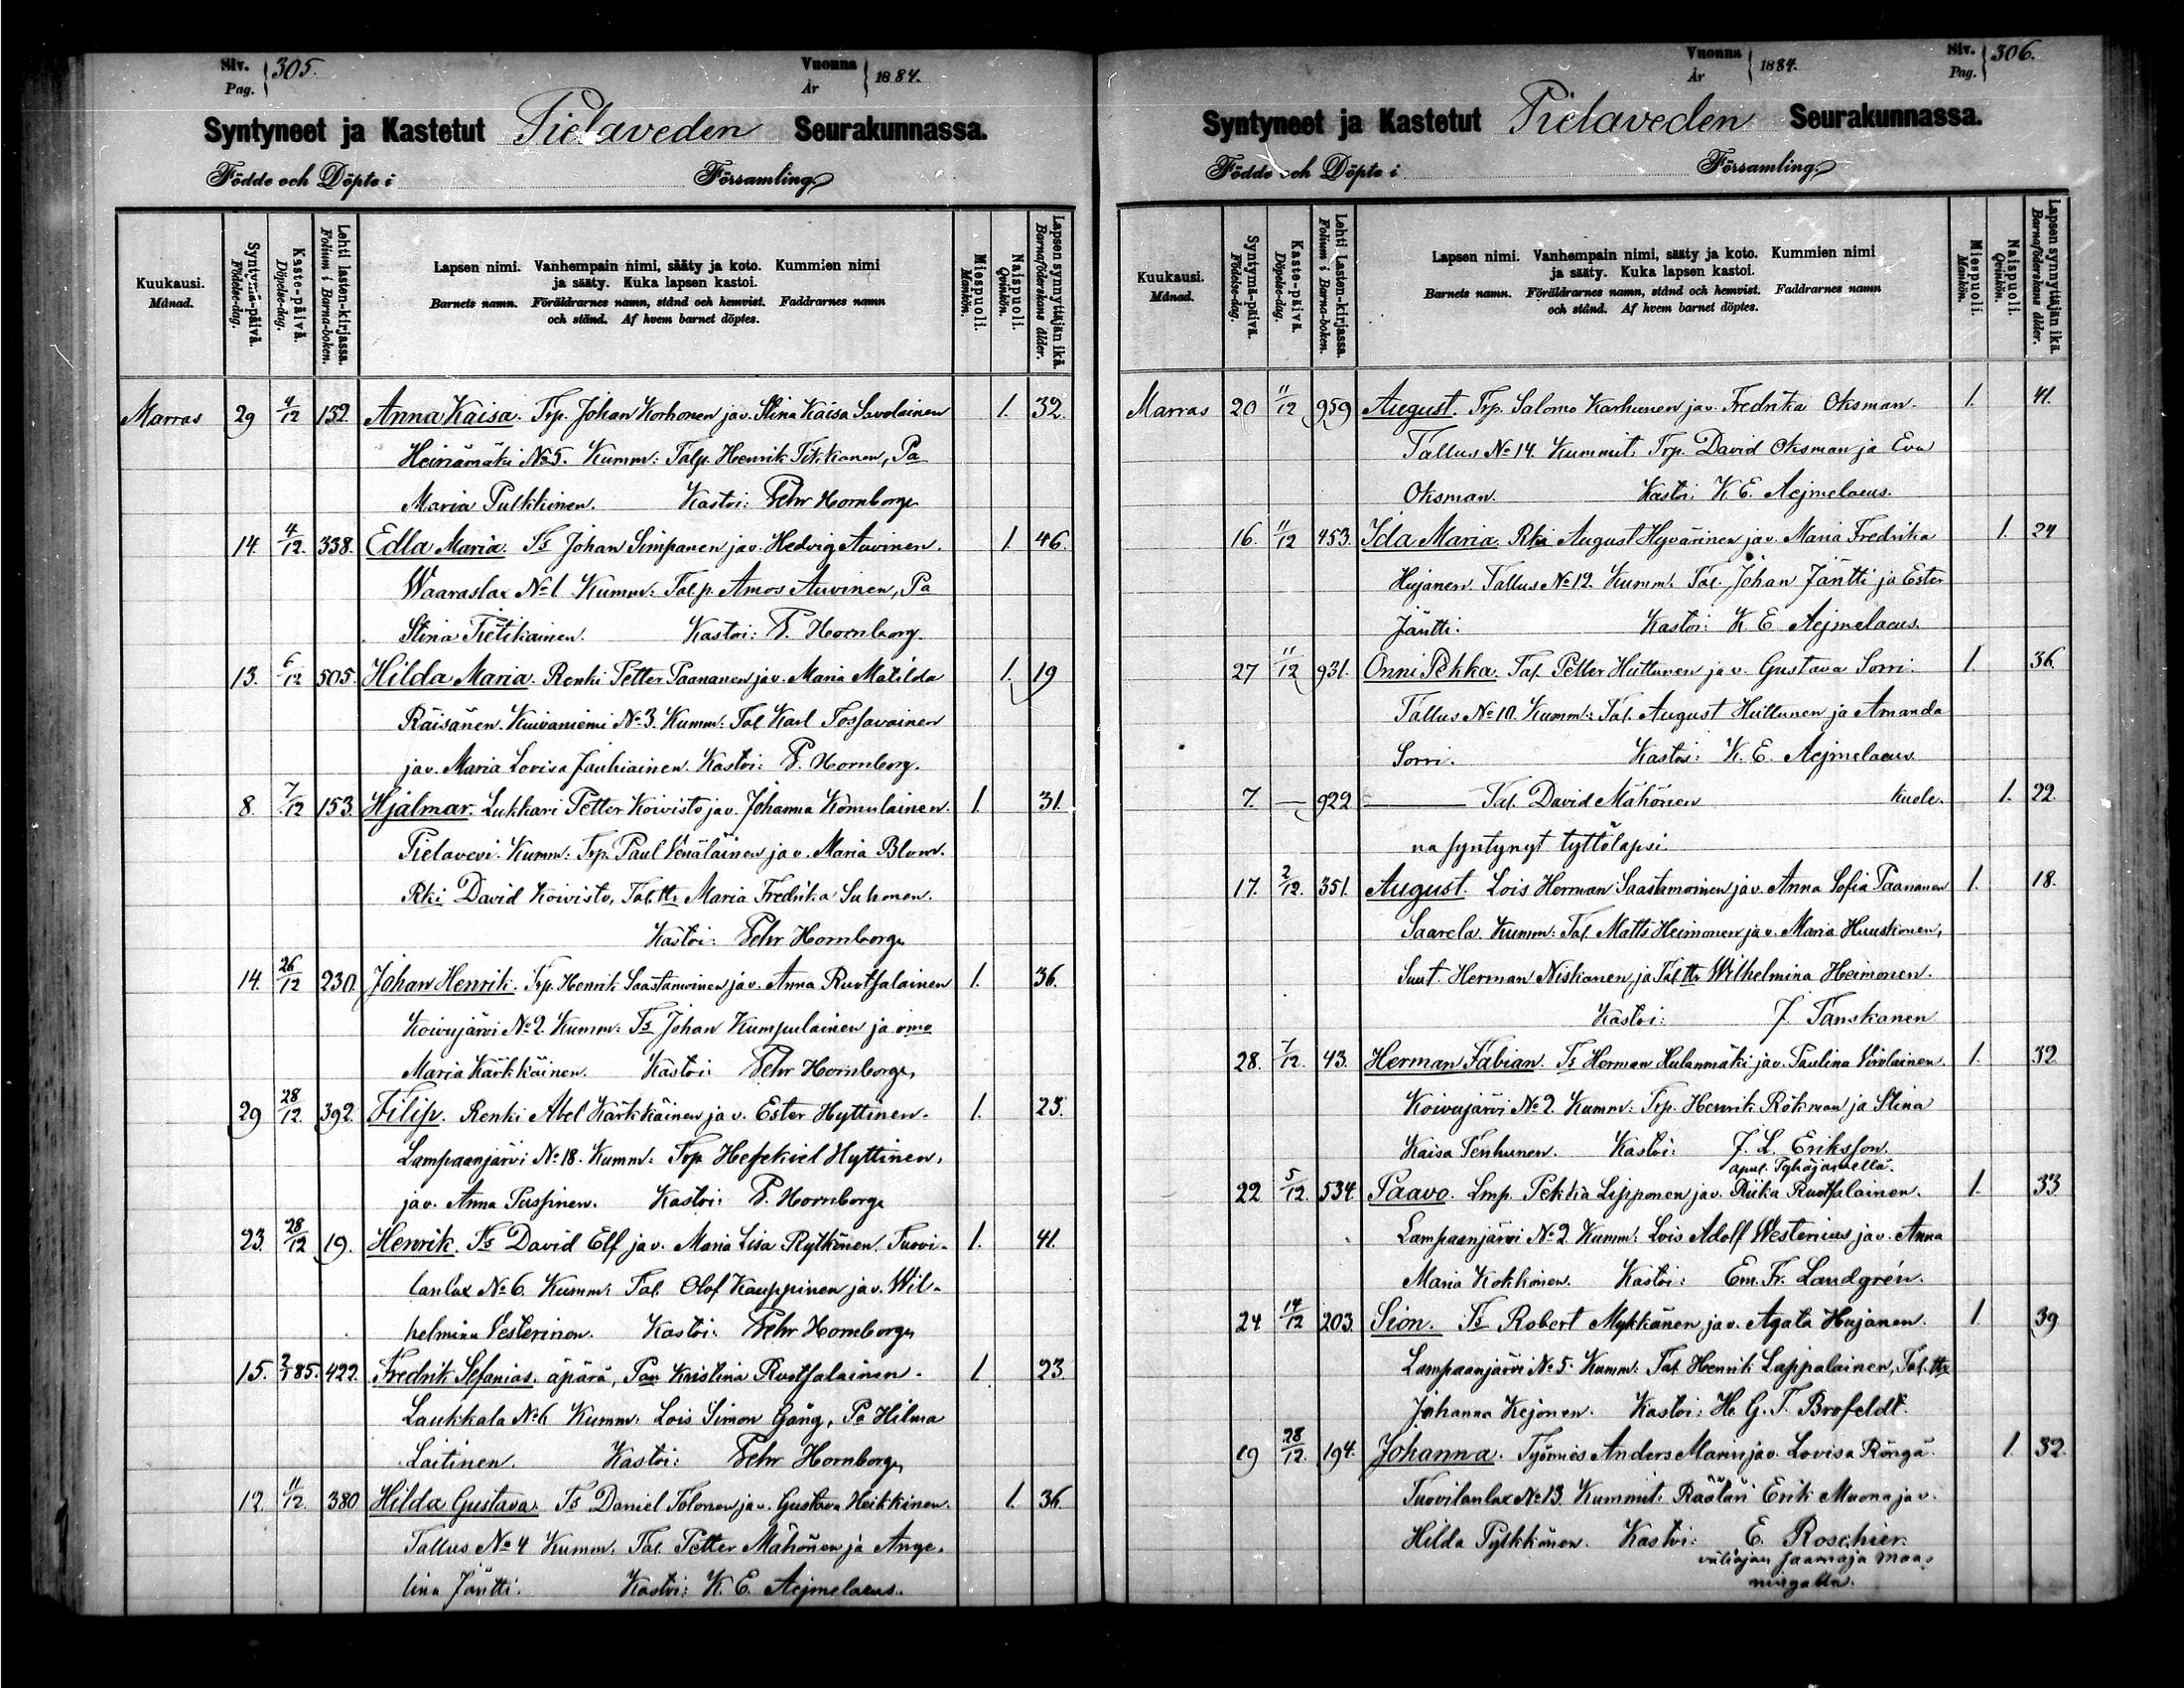 Siv. Pag. 305. Vuonna År 1884.
Syntyneet ja Kastetut Pielaveden Seurakunnassa.
Födde och Döpte i Församling.
Kuukausi. Månad.
Syntymä-päivä. Födelse-dag.
Kaste-päivä. Döpelse-dag.
Lehti lasten-kirjassa. Folium i Barna-boken.
Lapsen nimi. Vanhempain nimi, sääty ja koto. Kummien nimi
ja sääty. Kuka lapsen kastoi.
Barnets namn. Föräldrarnes namn, stånd och hemvist. Faddrarnes namn
och stånd. Af hvem barnet döptes.
Miespuoli. Mankön.
Naispuoli. Qvinkön.
Lapsen synnyttäjän ikä. Barnaföderskans ålder.
Marras 29 4/12 132. Anna Kaisa. Trp. Johan Korhonen ja v. Stina Kaisa Savolainen 1. 32.
Heinämäki No 5. Kumm: Talp. Henrik Tikkanen, Pa
Maria Pulkkinen. Kastoi: Pehr Hornborg
14. 4/12. 338. Edla Maria. Ts Johan Simpanen ja v. Hedvig Auvinen. 1. 46.
Waaraslax No 1. Kumm: Tal.p. Amos Auvinen, Pa
Stina Tietikainen. Kastoi: P. Hornborg.
13. 6/12 505. Hilda Maria. Renki Petter Paananen ja v. Maria Matilda 1. 19
Räisänen. Kuivaniemi No 3. Kumm: Tal Karl Tossavainen
ja v. Maria Lovisa Jauhiainen. Kastoi: P. Hornborg.
8. 7/12 153. Hjalmar. Lukkari Petter Koivisto ja v. Johanna Komulainen. 1. 31.
Pielavevi. Kumm: Trp. Paul Venäläinen ja v. Maria Blom.
Rki David Koivisto, Tal.ttr Maria Fredrika Suhonen.
Kastoi: Pehr Hornborg
14. 26/12 230. Johan Henrik. Trp. Henrik Saastamoinen ja v. Anna Ruotsalainen 1. 36.
Koivujärvi No 2. Kumm: Ts Johan Kumpulainen ja vmo
Maria Kärkkäinen. Kastoi: Pehr Hornborg,
29 28/12. 392. Filip. Renki Abel Kärkkäinen ja v. Ester Hyttinen. 1. 23.
Lampaanjärvi No 18. Kumm: Trp Hesekiel Hyttinen,
ja v. Anna Pussinen. Kastoi: P. Hornborg
23. 28/12 19. Henrik. Ts David Elf ja v. Maria Lisa Rytkönen. Tuovi- 1. 41.
lanlax No 6. Kumm: Tal. Olof Kauppinen ja v. Wil-
helmina Vesterinen. Kastoi: Pehr Hornborg
15. 3/1 85. 422. Fredrik Sefanias. äpärä, Pan Kristina Ruotsalainen. 1. 23.
Laukkala No 6 Kumm: Lois Simon Gäng, Pa Hilma
Laitinen. Kastoi: Pehr Hornborg,
12. 11/12. 380 Hilda Gustava. Ts Daniel Tolonen ja v. Gustava Heikkinen. 1. 36.
Tallus No 4 Kumm: Tal. Petter Mähönen ja Ange-
lina Jäntti. Kastoi: K. E. Aejmelaeus.
Vuonna År 1884. Siv. Pag. 306.
Syntyneet ja Kastetut Pielaveden Seurakunnassa.
Födde och Döpte i Församling.
Kuukausi. Månad.
Syntymä-päivä. Födelse-dag.
Kaste-päivä. Döpelse-dag.
Lehti lasten-kirjassa. Folium i Barna-boken.
Lapsen nimi. Vanhempain nimi, sääty ja koto. Kummien nimi
ja sääty. Kuka lapsen kastoi.
Barnets namn. Föräldrarnes namn, stånd och hemvist. Faddrarnes namn
och stånd. Af hvem barnet döptes.
Miespuoli. Mankön.
Naispuoli. Qvinkön.
Lapsen synnyttäjän ikä. Barnaföderskans ålder.
Marras 20 11/12 959 August. Trp. Salomo Karhunen ja v. Fredrika Oksman. 1. 41.
Tallus No 14. Kummit: Trp. David Oksman ja Eva
Oksman. Kastoi: K. E. Aejmelaeus.
16. 11/12 453. Ida Maria. Rki August Hyvärinen ja v. Maria Fredrika 1. 24
Hujanen. Tallus No 12. Kumm: Tal. Johan Jäntti ja Ester
Jäntti. Kastoi: K. E. Aejmelaeus.
27 11/12 931. Onni Pekka. Tal. Petter Huttunen ja v. Gustava Sorri. 1. 36.
Tallus No 10. Kumm: Tal. August Huttunen ja Amanda
Sorri. Kastoi: K. E. Aejmelaeus
7. — 922 — Tal. David Mähönen kuole- 1. 22.
na syntynyt tyttölapsi.
17. 2/12. 351. August. Lois Herman Saastamoinen ja v. Anna Sofia Paananen 1. 18.
Saarela. Kumm: Tal. Matts Heimonen ja v. Maria Huuskonen,
Suut. Herman Niskanen ja Tal.ttr Wilhelmina Heimonen.
Kastoi: J. Tanskanen
28. 7/12. 43. Herman Fabian. Ts Herman Hulanmäki ja v. Paulina Virolainen. 1. 32
Koivujärvi No 2. Kumm: Trp. Henrik Rökman ja Stina
Kaisa Tenhunen. Kastoi: J. L. Eriksson.
apul. Pyhäjärvellä.
22 5/12. 534. Paavo. Lmp. Pekka Lipponen ja v. Riika Ruotsalainen. 1. 33
Lampaanjärvi No 2. Kumm: Lois Adolf Westerius ja v. Anna
Maria Kokkonen. Kastoi: Em. Fr. Landgrén.
24 14/12 203. Sion. Ts Robert Mykkänen ja v. Agata Hujanen. 1. 39
Lampaanjärvi No 5. Kumm: Tal. Henrik Lappalainen, Tal.ttr
Johanna Kejonen. Kastoi: H. G. T. Brofeldt.
19 28/12. 194. Johanna. Työmies Anders Marin ja v. Lovisa Röngä. 1. 32.
Tuovilanlax No 13. Kummit: Räätäri Erik Muona ja v.
Hilda Pylkkönen. Kastoi: E. Roschier.
väliajan saarnaja Maa-
ningalla.